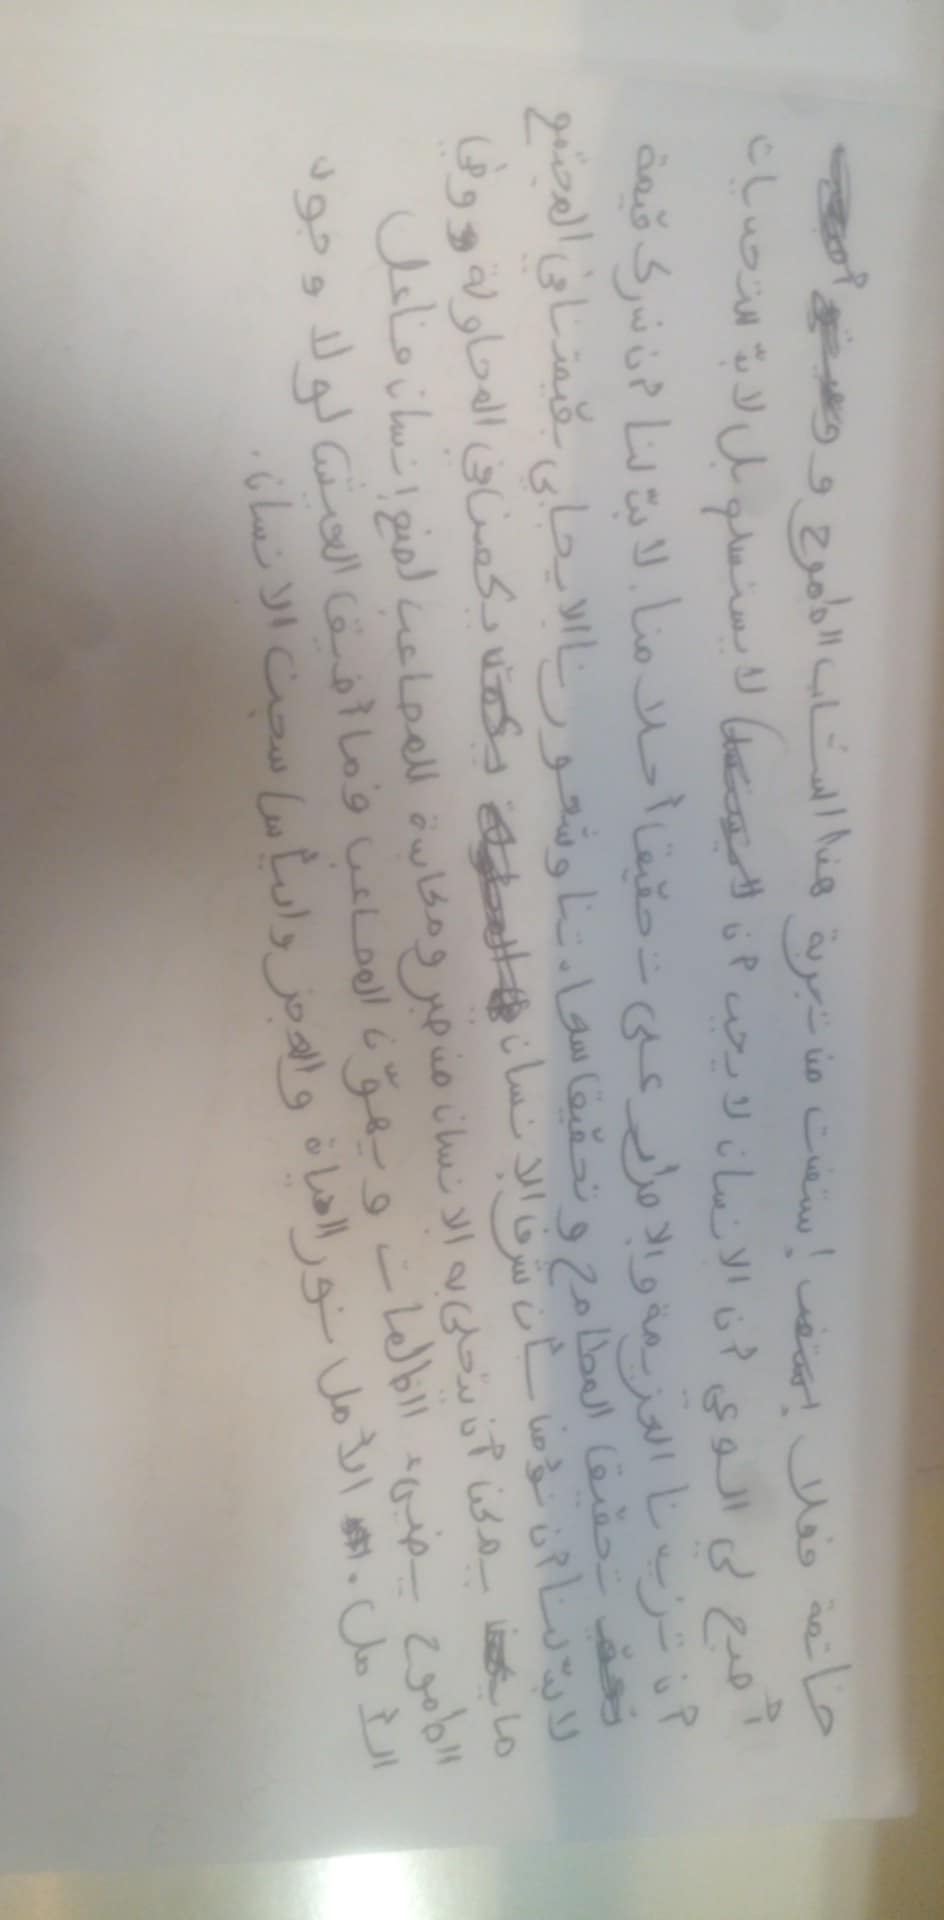 خاتمة فعلا إستفدت من تجربة هذا الشاب الطموح و
أصبح لي الوعي أن الانسان لا يجب أن لا يستسلم بل لا بدّ للتحديات
أن تزيدنا العزيمة والإصرار على تحقيق أحلامنا. لا بدّ لنا أن ندرك قيمة
تحقيق المطامح وتحقيق سعادتنا وشعورنا الايجابي بقيمتنا في المجتمع
لا بدّ لنا أن نؤمن بأن شرف الإنسان يكمن في المحاولة وفي
ما يمكن أن يتحلى به الانسان من صبر ومكابدة للمصاعب لصنع إنسان فاعل
الطموح يضيء الظلمات ويهوّن المصاعب فما أضيق العيش لولا وجود
الأمل. الأمل نور الحياة والعجز واليأس سجن الانسان.